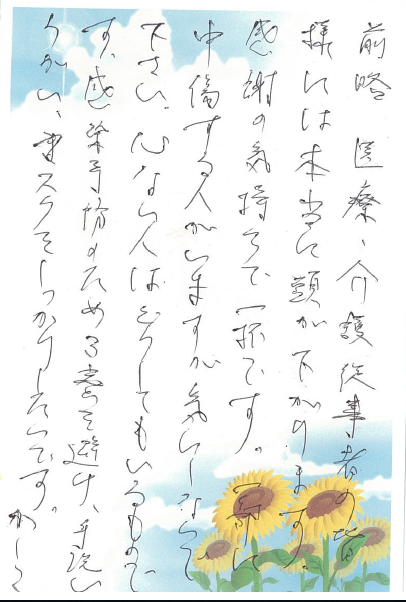 前略 医療、介護従事者の皆
様には本当に頭が下がります。
感謝の気持ちで一杯です。一部に
中傷する人がいますが気にしないで
下さい。心ない人はどうしてもいるもので
す。感染予防のため3密を避け、手洗い
うがい、マスクをしっかりしたいです。かしこ